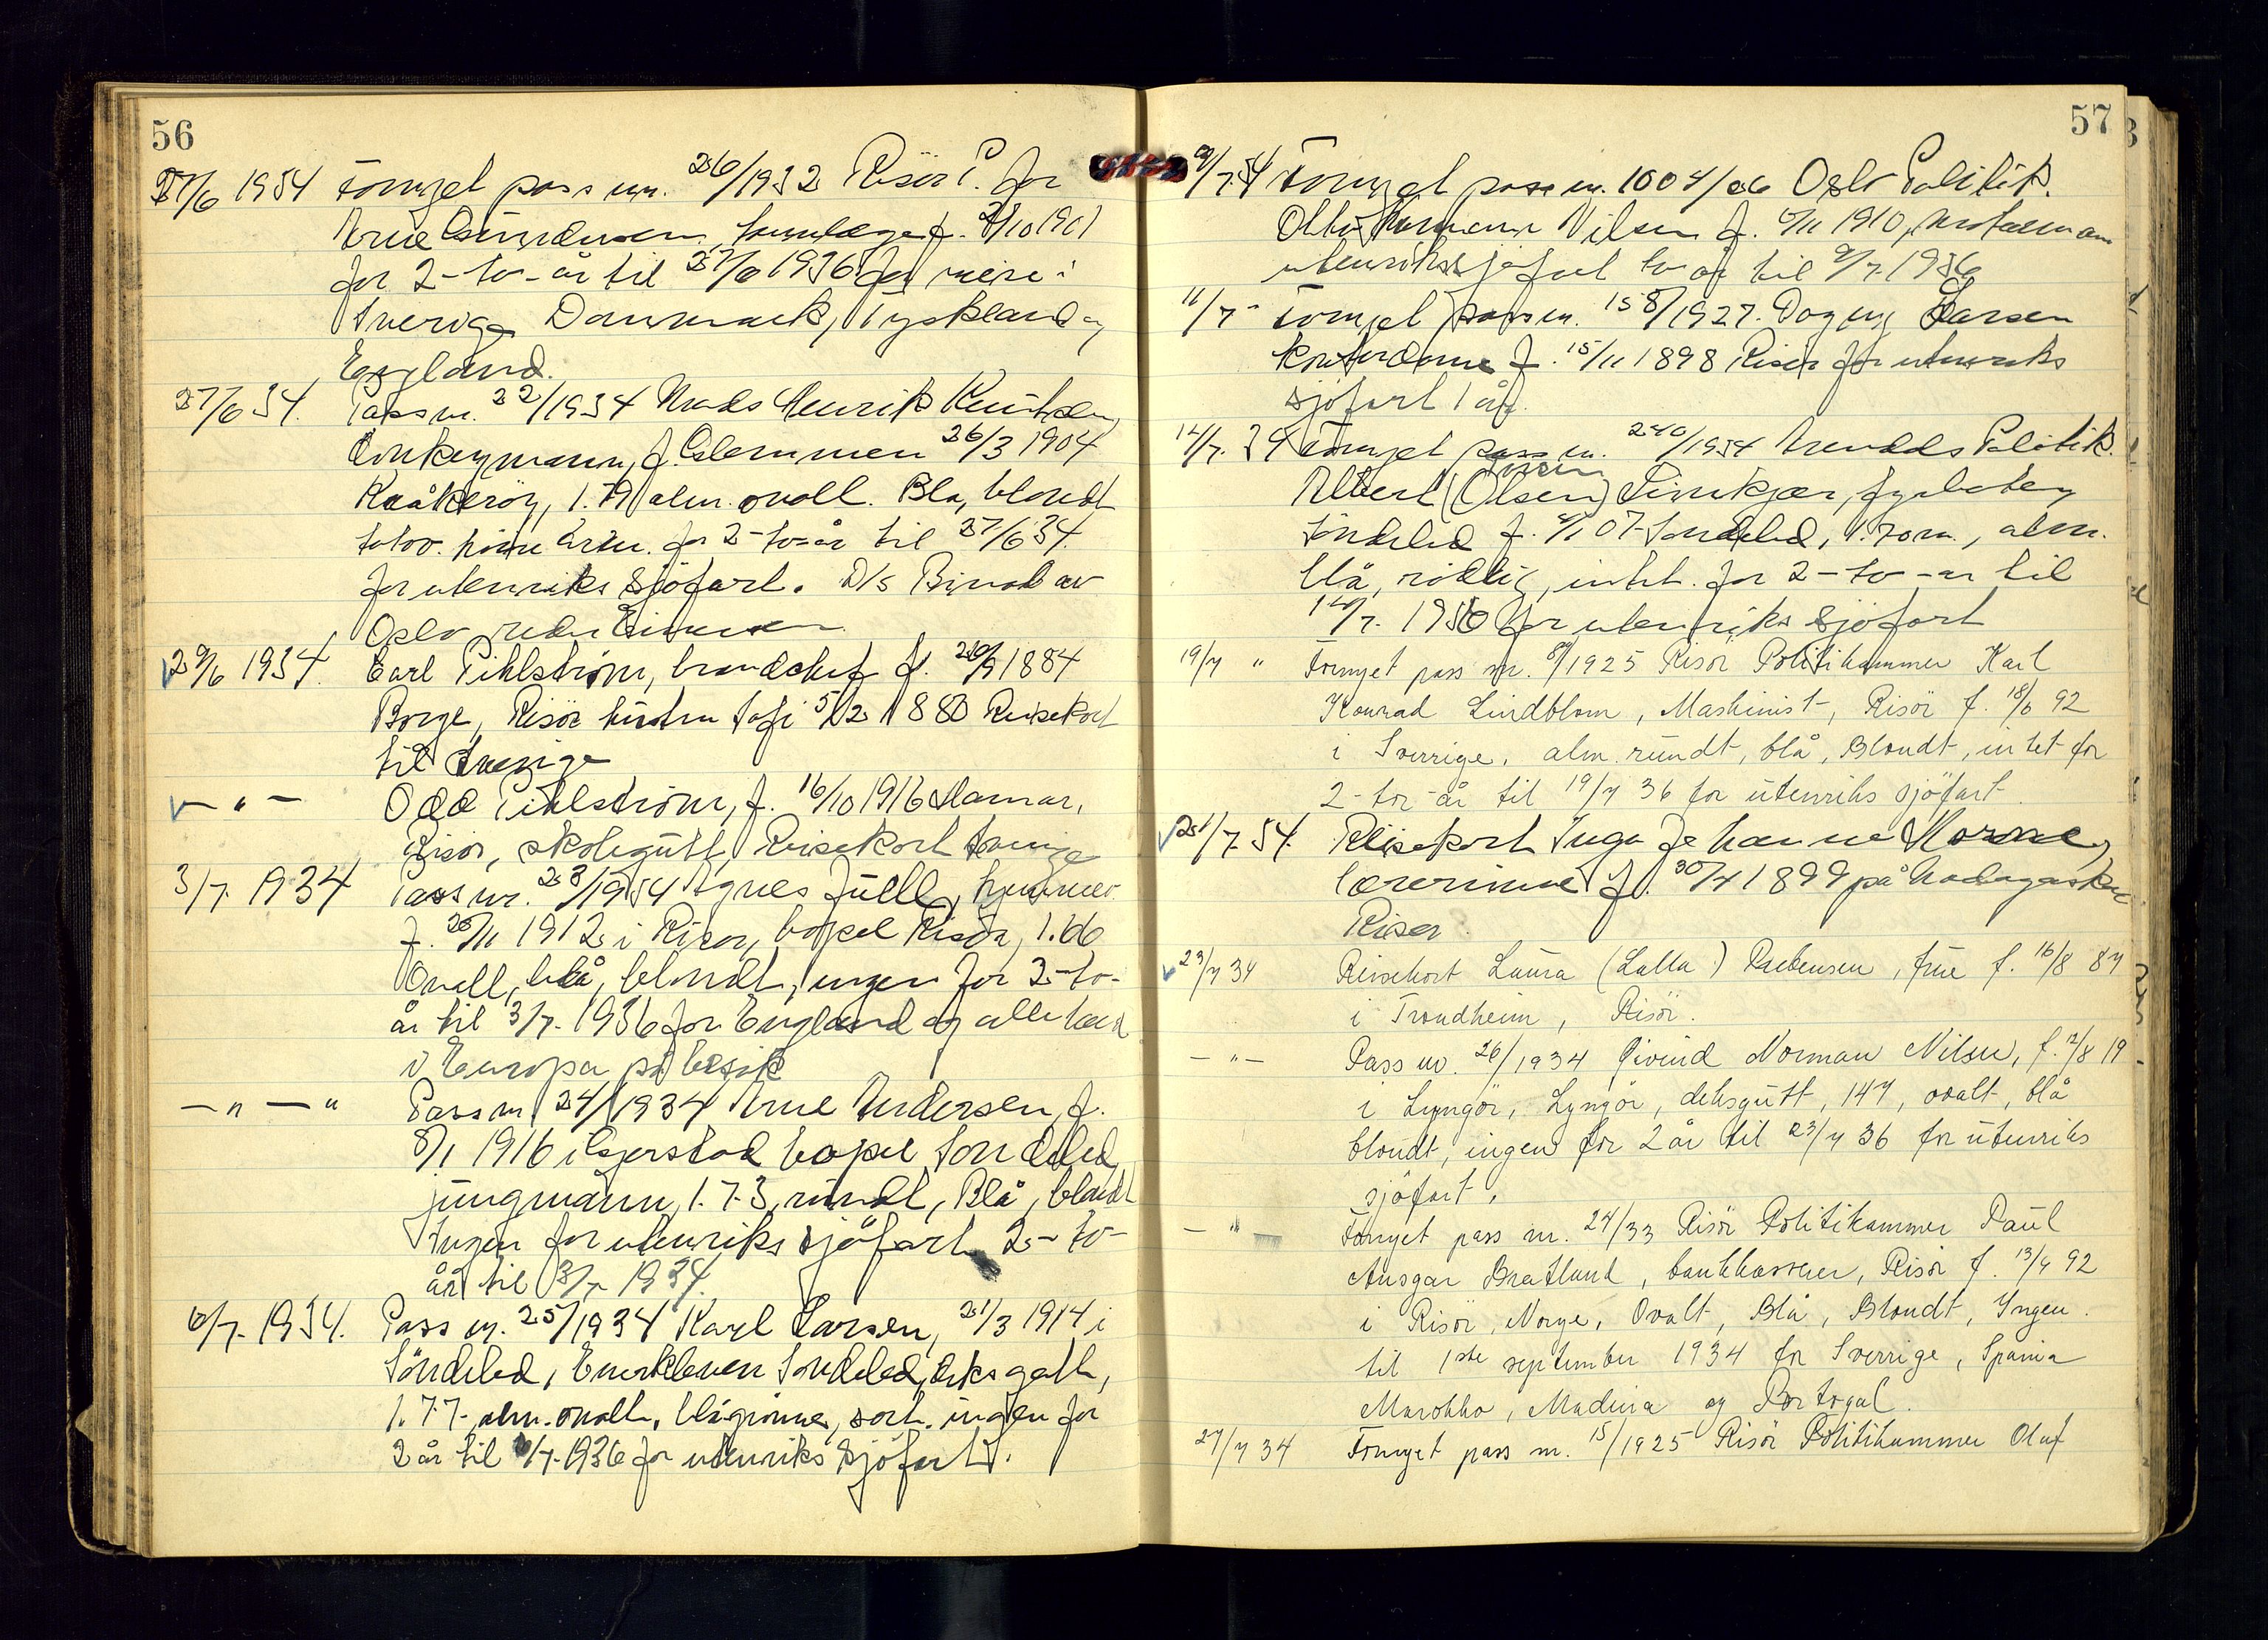 56
27/6 1934 Fornyet pass nr. 26/1932 Risör P. for
Arne Gundersen, f. 2/10 1901
for 2-to-år til 27/6 1936 for reise i
Sverige Danmark, Tyskland og
England.
27/6 34. Pass nr. 22/1934 Mads Henrik Knutsen,
donkeymann, f. Glemmen 26/3 1904
Kråkeröy, 1.79 alm. ovall. Blå, blondt
tatov. höire arm. for 2-to-år til 27/6 34.
for utenriks sjöfart. D/s av
Oslo
29/6 1934. Carl Pihlström, brandchef f. 1884
Borge, Risör hustru 5/12 1880 Reisekort
til Sverige
- " - Odd Pihlström, f. 16/10 1916 Hamar,
Risör, skolegutt Reisekort Sverige
3/7. 1934 Pass nr. 23/1934 Agnes Juell, hjemmev.
f. 1912 i Risör, bopel Risör, 1.66
Ovall, blå, blondt, ingen for 2-to-
år til 3/7. 1936 for England og alle land
i Europa på besök
- " - " Pass nr. 24/1934 Arne Andersen, f.
8/1 1916 i Gjerstad bopel Söndeled,
jungmann, 1.73, rundt, Blå, blondt
Ingen for utenriks sjöfart 2-to-
år til 3/7 1934.
6/7. 1934. Pass nr. 25/1934 Karl Larsen, 21/3 1914 i
Söndeled, Söndeled, deksgutt,
1.77. alm. ovall, blågrönne, sort. ingen for
2 år til 6/7. 1936 for utenriks sjöfart.
57
9/7.34 Fornyet pass nr. 1004/26 Oslo Politik.
Otto Hermann Nilsen f. 1910,
utenrikssjöfart to år til 9/7. 1936
11/7 - Fornyet pass nr. 158/1927. Dagny Larsen
kontordame f. 15/11 1898 Risör for utenriks
sjöfart 1 år.
12/7. 34 Fornyet pass nr. 240/1934 Arendals Politik.
Albert (Olsen) fyrböter
Söndeled f. 07 Söndeled, 1.70 m., alm.
blå, rödlig, intet. for 2-to-år til
12/7. 1936 for utenriks sjöfart
19/7 " Fornyet pass nr. 8/1925 Risör Politikammer Karl
Konrad Lindblom, Maskinist, Risör f. 18/6 92
i Sverrige, alm. rundt, blå, Blondt, intet for
2-to-år til 19/7 36 for utenriks sjöfart.
21/7. 34. Reisekort Inga Johanne
lærerinne f. 30/7 1899 på Madagaskar
Risör.
23/7 34 Reisekort Laura (Lalla) Prebensen, frue f. 16/8 87
i Trondheim, Risör.
- " - Pass nr. 26/1934 Öivind Norman Nilsen, f. 2/8 19
i Lyngör, Lyngör, deksgutt, 147, ovalt, blå
blondt, ingen for 2 år til 23/7 36 for utenriks
sjöfart.
- " Fornyet pass nr. 24/33 Risör Politikammer Paul
Ansgar Bratlund, bankkasserer, Risör f. 13/9 92
i Risör, Norge, Ovalt, Blå, Blondt, Ingen.
til 1ste september 1934 for Sverrige, Spania
Marokko, Madeira og Portogal.
27/7 34 Fornyet pass nr. 15/1925 Risör Politikammer Olaf